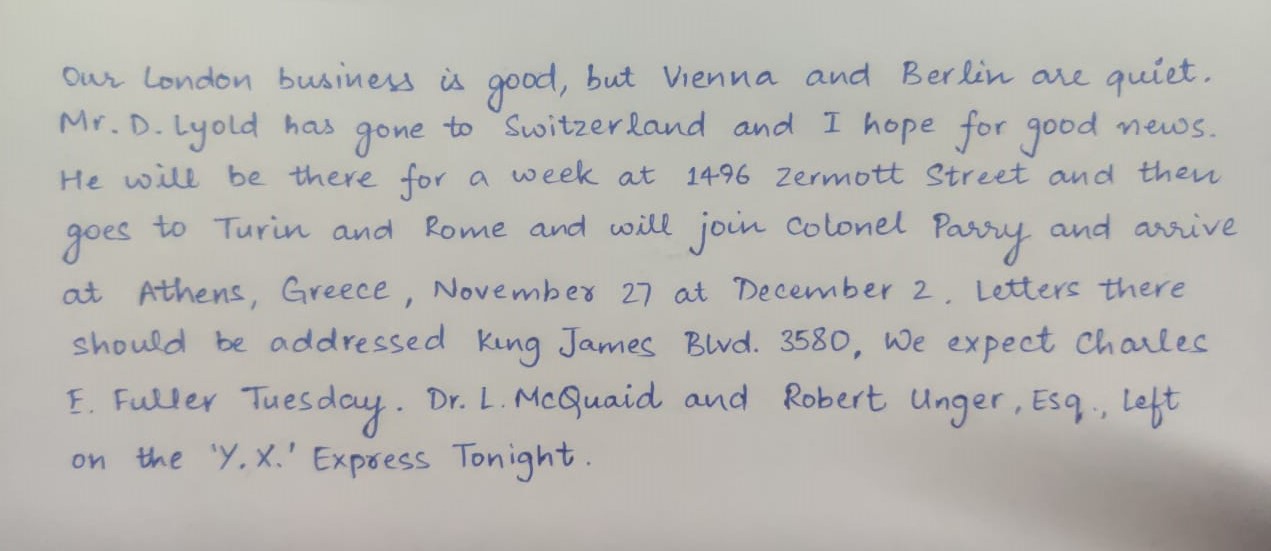 Our London business is good, but Vienna and Berlin are quiet.
Mr. D. Lyold has gone to Switzerland and I hope for good news.
He will be there for a week at 1496 Zermott Street and then
goes to Turin and Rome and will join Colonel Parry and arrive
at Athens, Greece, November 27 at December 2. Letters there
should be addressed King James Blvd. 3580, We expect Charles
E. Fuller Tuesday. Dr. L. McQuaid and Robert Unger, Esq., Left
on the 'Y.X.' Express Tonight.